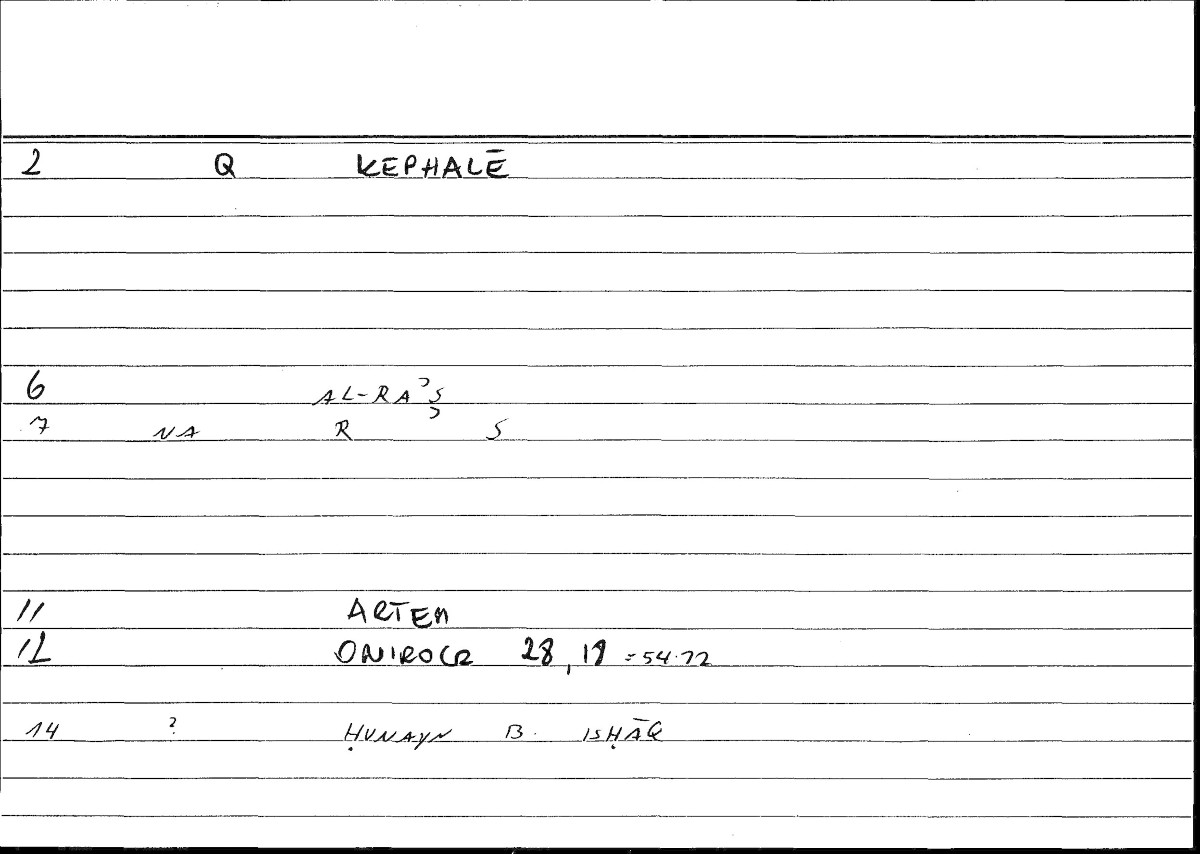 2 Q KEPHALĒ
6 AL-RAʾS
7 NA R ʾ S
11 ARTEM
12 ONIROCR 28,19 = 54.12
14 ? ḤUNAYN B. ISḤĀQ